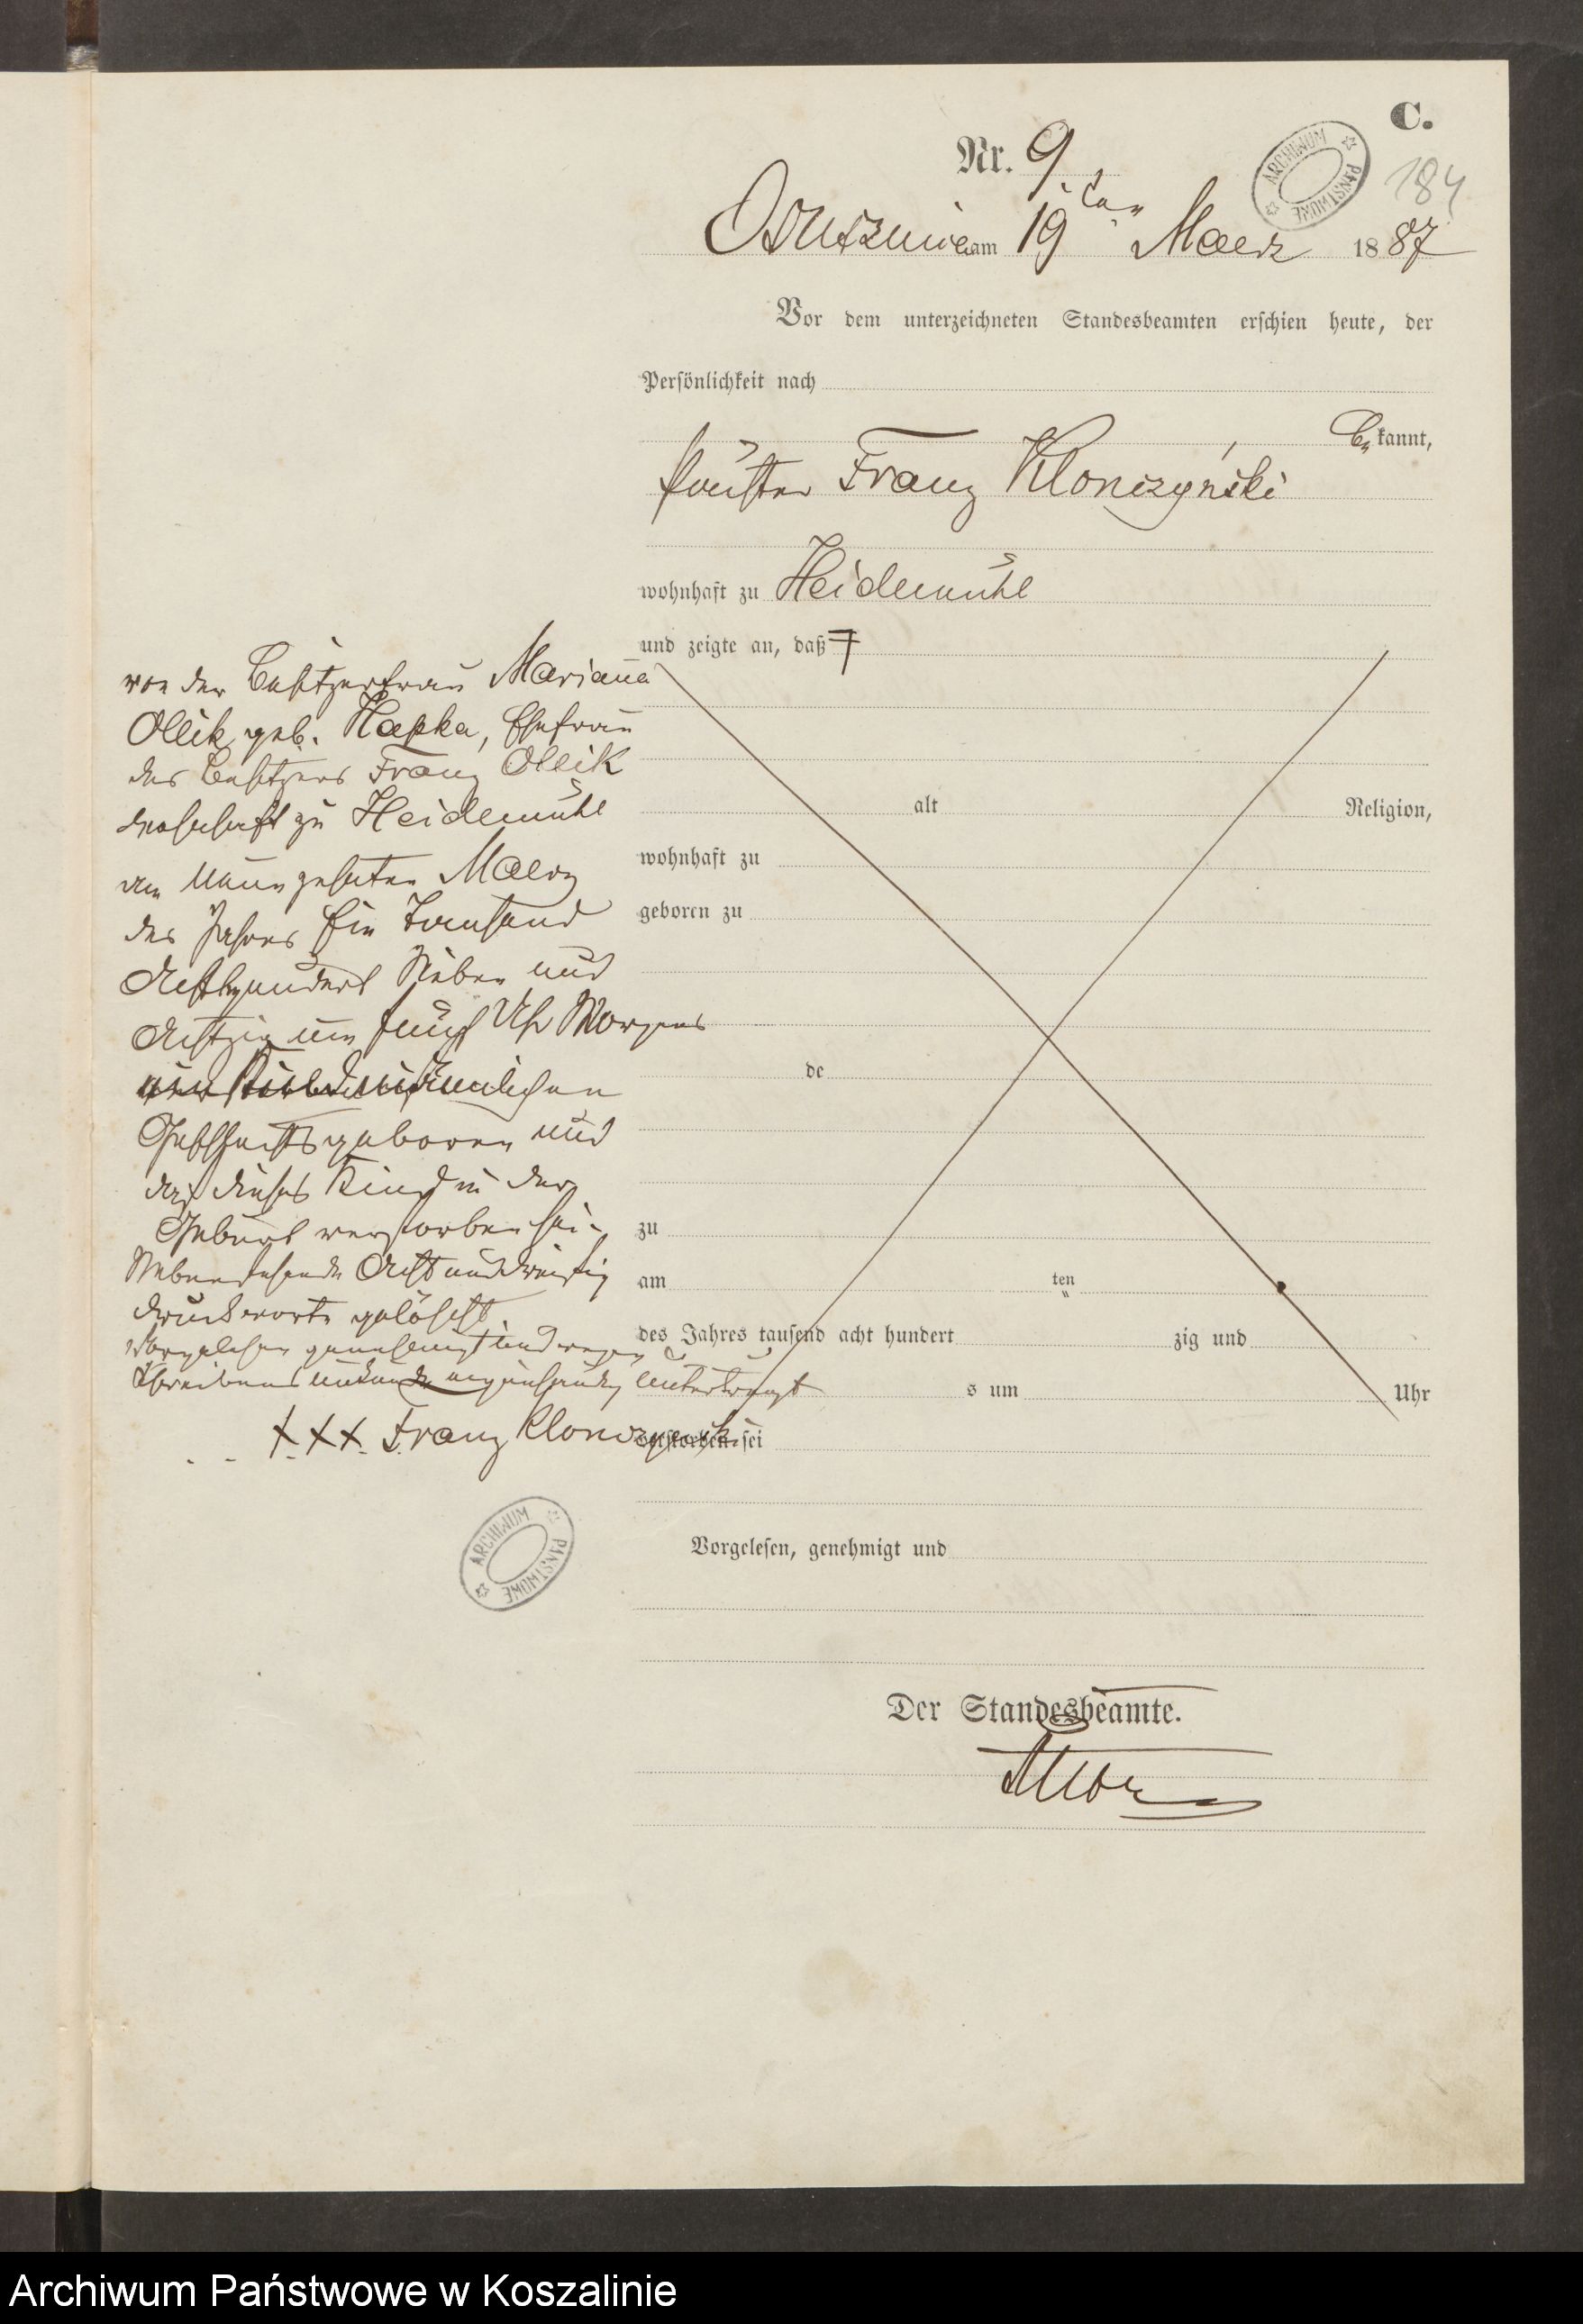 C.
Nr. 9.
184
ARCHIWUM PAŃSTWOWE
Ossusznica am 19ten Maerz 1887
Vor dem unterzeichneten Standesbeamten erschien heute, der
Persönlichkeit nach
be kannt,
Franz Klonczynski
wohnhaft zu Heidemühl
und zeigte an, daß
von der Besitzerfrau Marianna
Ollik geb. Hapka, Ehefrau
des Besitzers Franz Ollik
wohnhaft zu Heidemühl
am Neunzehnten Maerz
des Jahres Ein Tausend
Achthundert Sieben und
Achtzig um fünf Uhr Morgens
ein Kind männlichen
Geschlechts geboren und
daß dieses Kind in der
Geburt verstorben sei.
Nebenstehende Acht und dreißig
Druckworte gelöscht
Vorgelesen genehmigt und wegen
Schreibensunkunde unterkreuzt
XXX. Franz Klonczynski
alt
Religion,
wohnhaft zu
geboren zu
de
zu
am ten
des Jahres tausend acht hundert zig und
s um Uhr
verstorben sei
ARCHIWUM PAŃSTWOWE
Vorgelesen, genehmigt und
Der Standesbeamte.
Archiwum Państwowe w Koszalinie